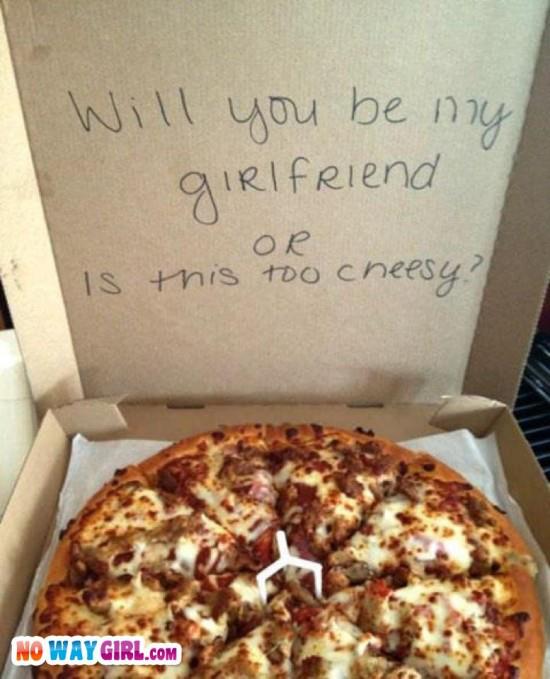 Will you be my
girlfriend
OR
Is this too cheesy?
NO WAY GIRL.COM